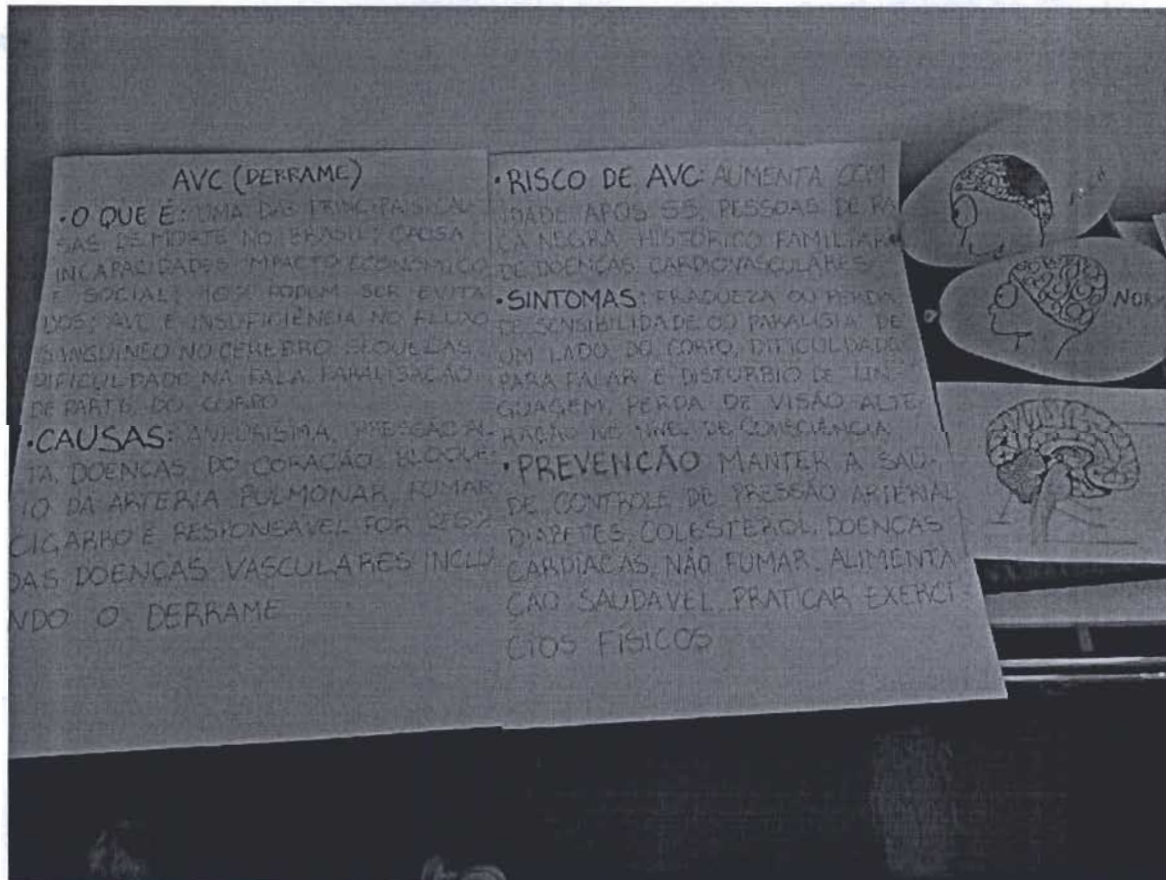 AVC (DERRAME)
• O QUE É: UMA DAS PRINCIPAIS CAU-
SAS DE MORTE NO BRASIL; CAUSA
INCAPACIDADES IMPACTO ECONÔMICO
E SOCIAL; PODEM SER EVITA
DOS; AVC É INSUFICIÊNCIA NO FLUXO
SANGUÍNEO NO CÉREBRO SEQUELAS
DIFICULDADE NA FALA, PARALISAÇÃO
DE PARTE DO CORPO
• CAUSAS: ANEURISMA, PRESSÃO AL-
TA, DOENÇAS DO CORAÇÃO, BLOQUE
IO DA ARTERIA PULMONAR, FUMAR
CIGARRO É RESPONSAVEL POR
DAS DOENÇAS VASCULARES INCLU
NDO O DERRAME
• RISCO DE AVC: AUMENTA COM
IDADE APÓS 55, PESSOAS DE RA
ÇA NEGRA HISTÓRICO FAMILIAR
DE DOENÇAS CARDIOVASCULARES
• SINTOMAS: FRAQUEZA OU PERDA
DE SENSIBILIDADE OU PARALISIA DE
UM LADO DO CORPO, DIFICULDADE
PARA FALAR E DISTURBIO DE LIN-
GUAGEM, PERDA DE VISÃO ALTE-
RAÇÃO NO NÍVEL DE CONSCIÊNCIA
• PREVENÇÃO MANTER A SAÚ-
DE CONTROLE DE PRESSÃO ARTERIAL
DIABETES, COLESTEROL, DOENÇAS
CARDÍACAS, NÃO FUMAR, ALIMENTA
ÇÃO SAUDAVEL, PRATICAR EXERCÍ
CIOS FÍSICOS